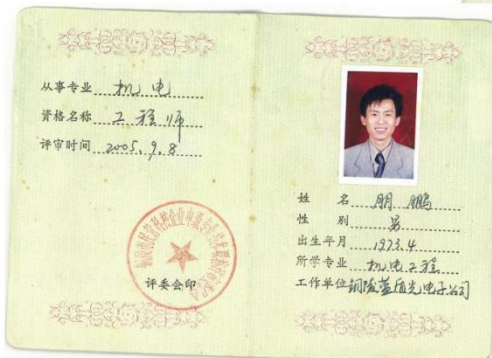 从事专业 机电
资格名称 工程师
评审时间 2005.9.8
评委会印
姓 名 朋鹏
性 别 男
出生年月 1973.4
所学专业 机电工程
工作单位 铜陵蓝盾光电子公司